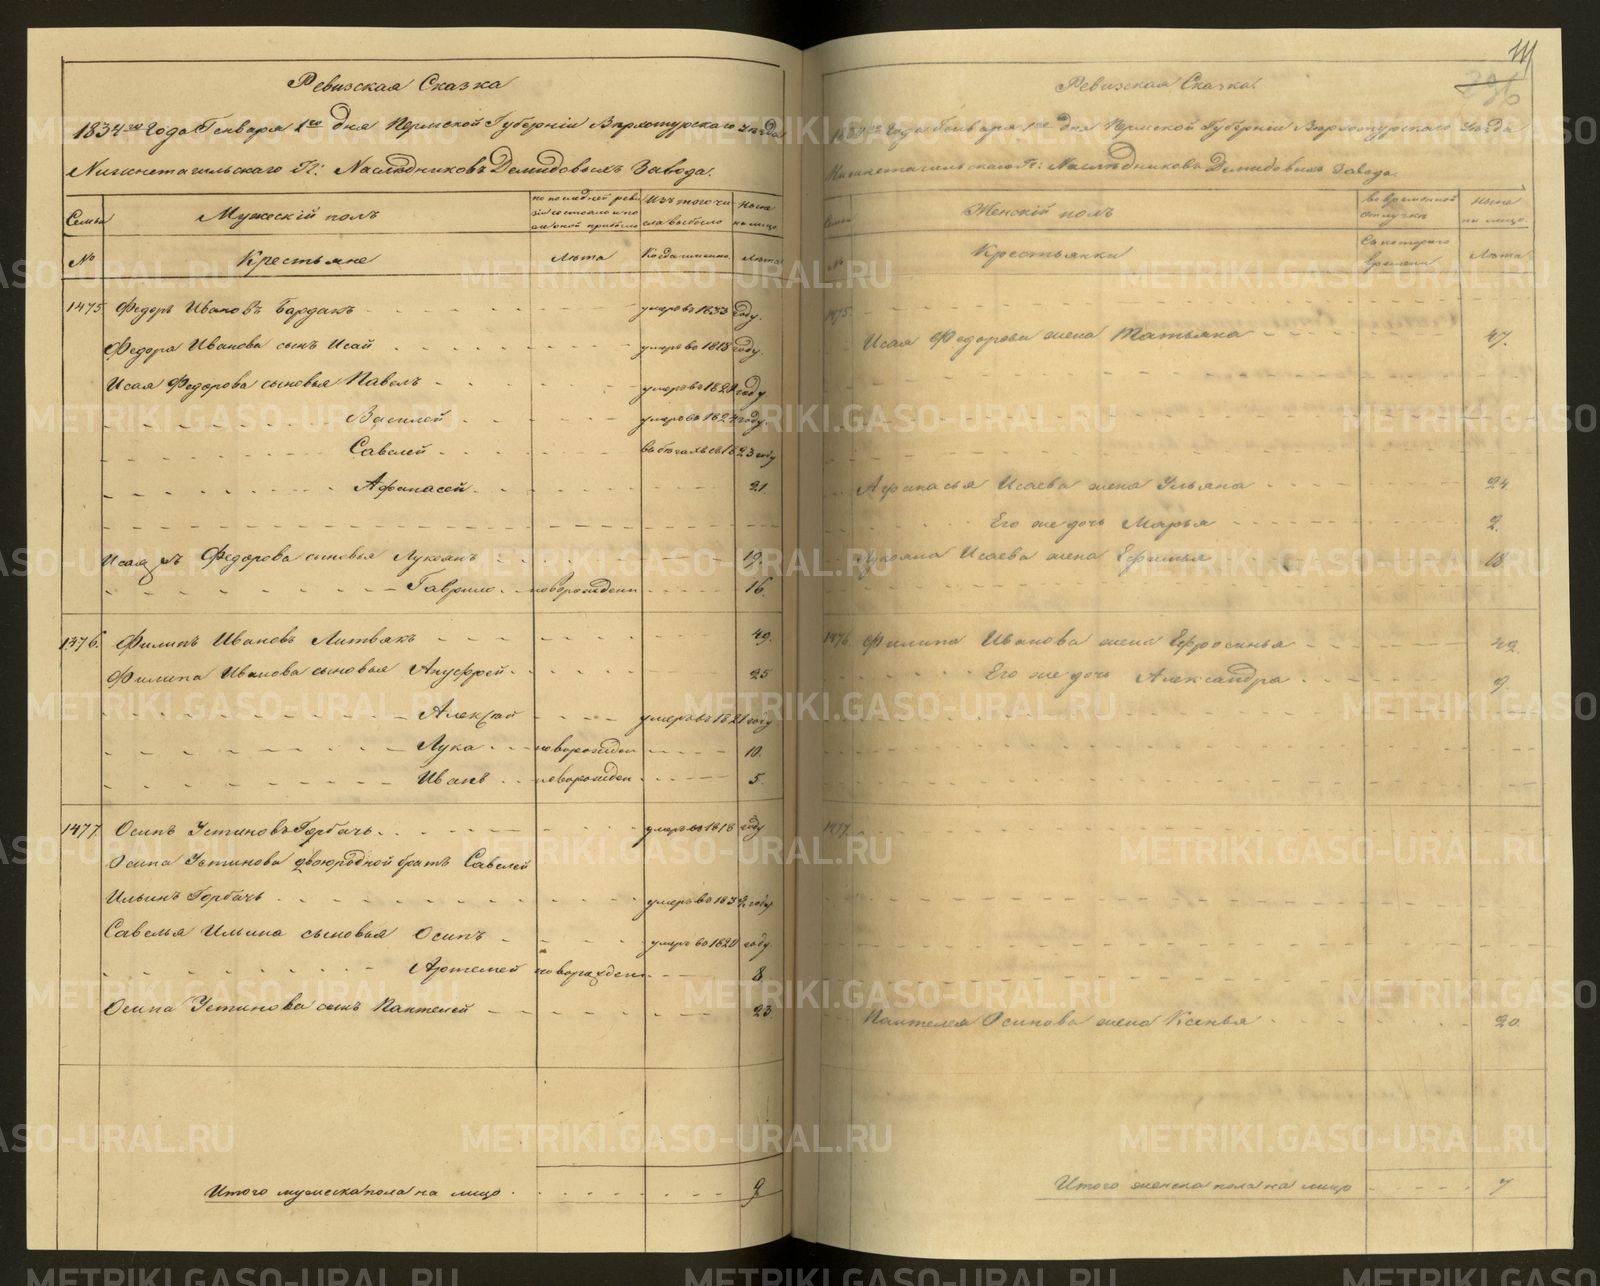 Ревизская Сказка
1834го Года Генваря 1го дня Пермской Губернiи Верхотурскаго уезда
Нижнетагильскаго Г: Наследниковъ Демидовыхъ Завода.
Семьи Мужескiй полъ по последней ревизiи состояло и после оной прибыло Изъ того числа выбыло Ныне на лицо
№ Крестьяне Лета Когда именно Лета
1475 Федоръ Ивановъ Бардакъ умеръ въ 1833 году.
Федора Иванова сынъ Исай умеръ во 1818 году.
Исая Федорова сыновья Павелъ умеръ въ 1824 году
Василей умеръ въ 1824 году.
Савелей въ бегахъ съ 1823 году
Афонасей 21.
Исая Федорова сыновья Лукоянъ 19.
Гаврило новорожденн 16.
1476. Филипъ Ивановъ Литвякъ 49.
Филипа Иванова сыновья Ануфрей 25
Алексей умеръ въ 1821 году
Лука новорожден 10.
Иванъ новорожден 5.
1477. Осипъ Устиновъ Горбачь умеръ во 1818 году
Осипа Устинова двоюродной братъ Савелей
Ильинъ Горбачь умеръ въ 1832 году
Савелья Ильина сыновья Осипъ умеръ во 1820 году.
Артемей новорожден 8.
Осипа Устинова сынъ Пантелей 23.
Итого мужеска пола на лицо 9
111
396
Ревизская Сказка
1834го Года Генваря 1го дня Пермской Губернiи Верхотурскаго уезда
Нижнетагильскаго Г: Наследниковъ Демидовыхъ Завода.
Семьи Женскiй полъ во временной отлучке Ныне на лицо
№ Крестьянки Съ котораго времени Лета
1475.
Исая Федорова жена Татьяна 47.
Афанасья Исаева жена Ульяна 24.
Его же дочь Марья 2.
Лукояна Исаева жена Ефимья 18
1476. Филипа Иванова жена Ефросинья 42
Его же дочь Александра 9.
1477.
Пантелея Осипова жена Ксенья 20.
Итого женска пола на лицо 7
METRIKI.GASO-URAL.RU